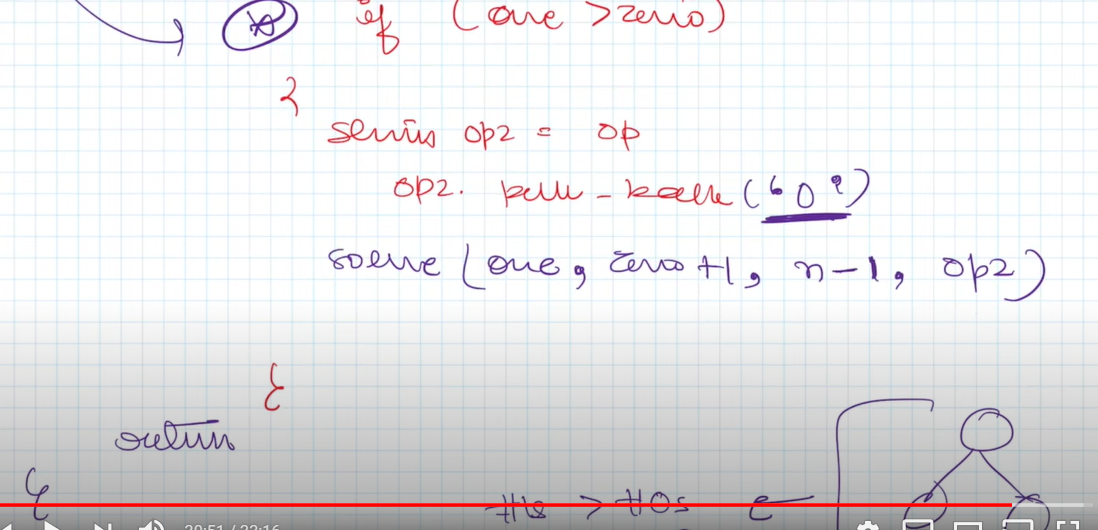 if (one > zero)
{
string op2 = op
op2. push-back ('0')
solve (one, zero+1, n-1, op2)
}
return
}
#1s > #0s
20:51 / 22:16